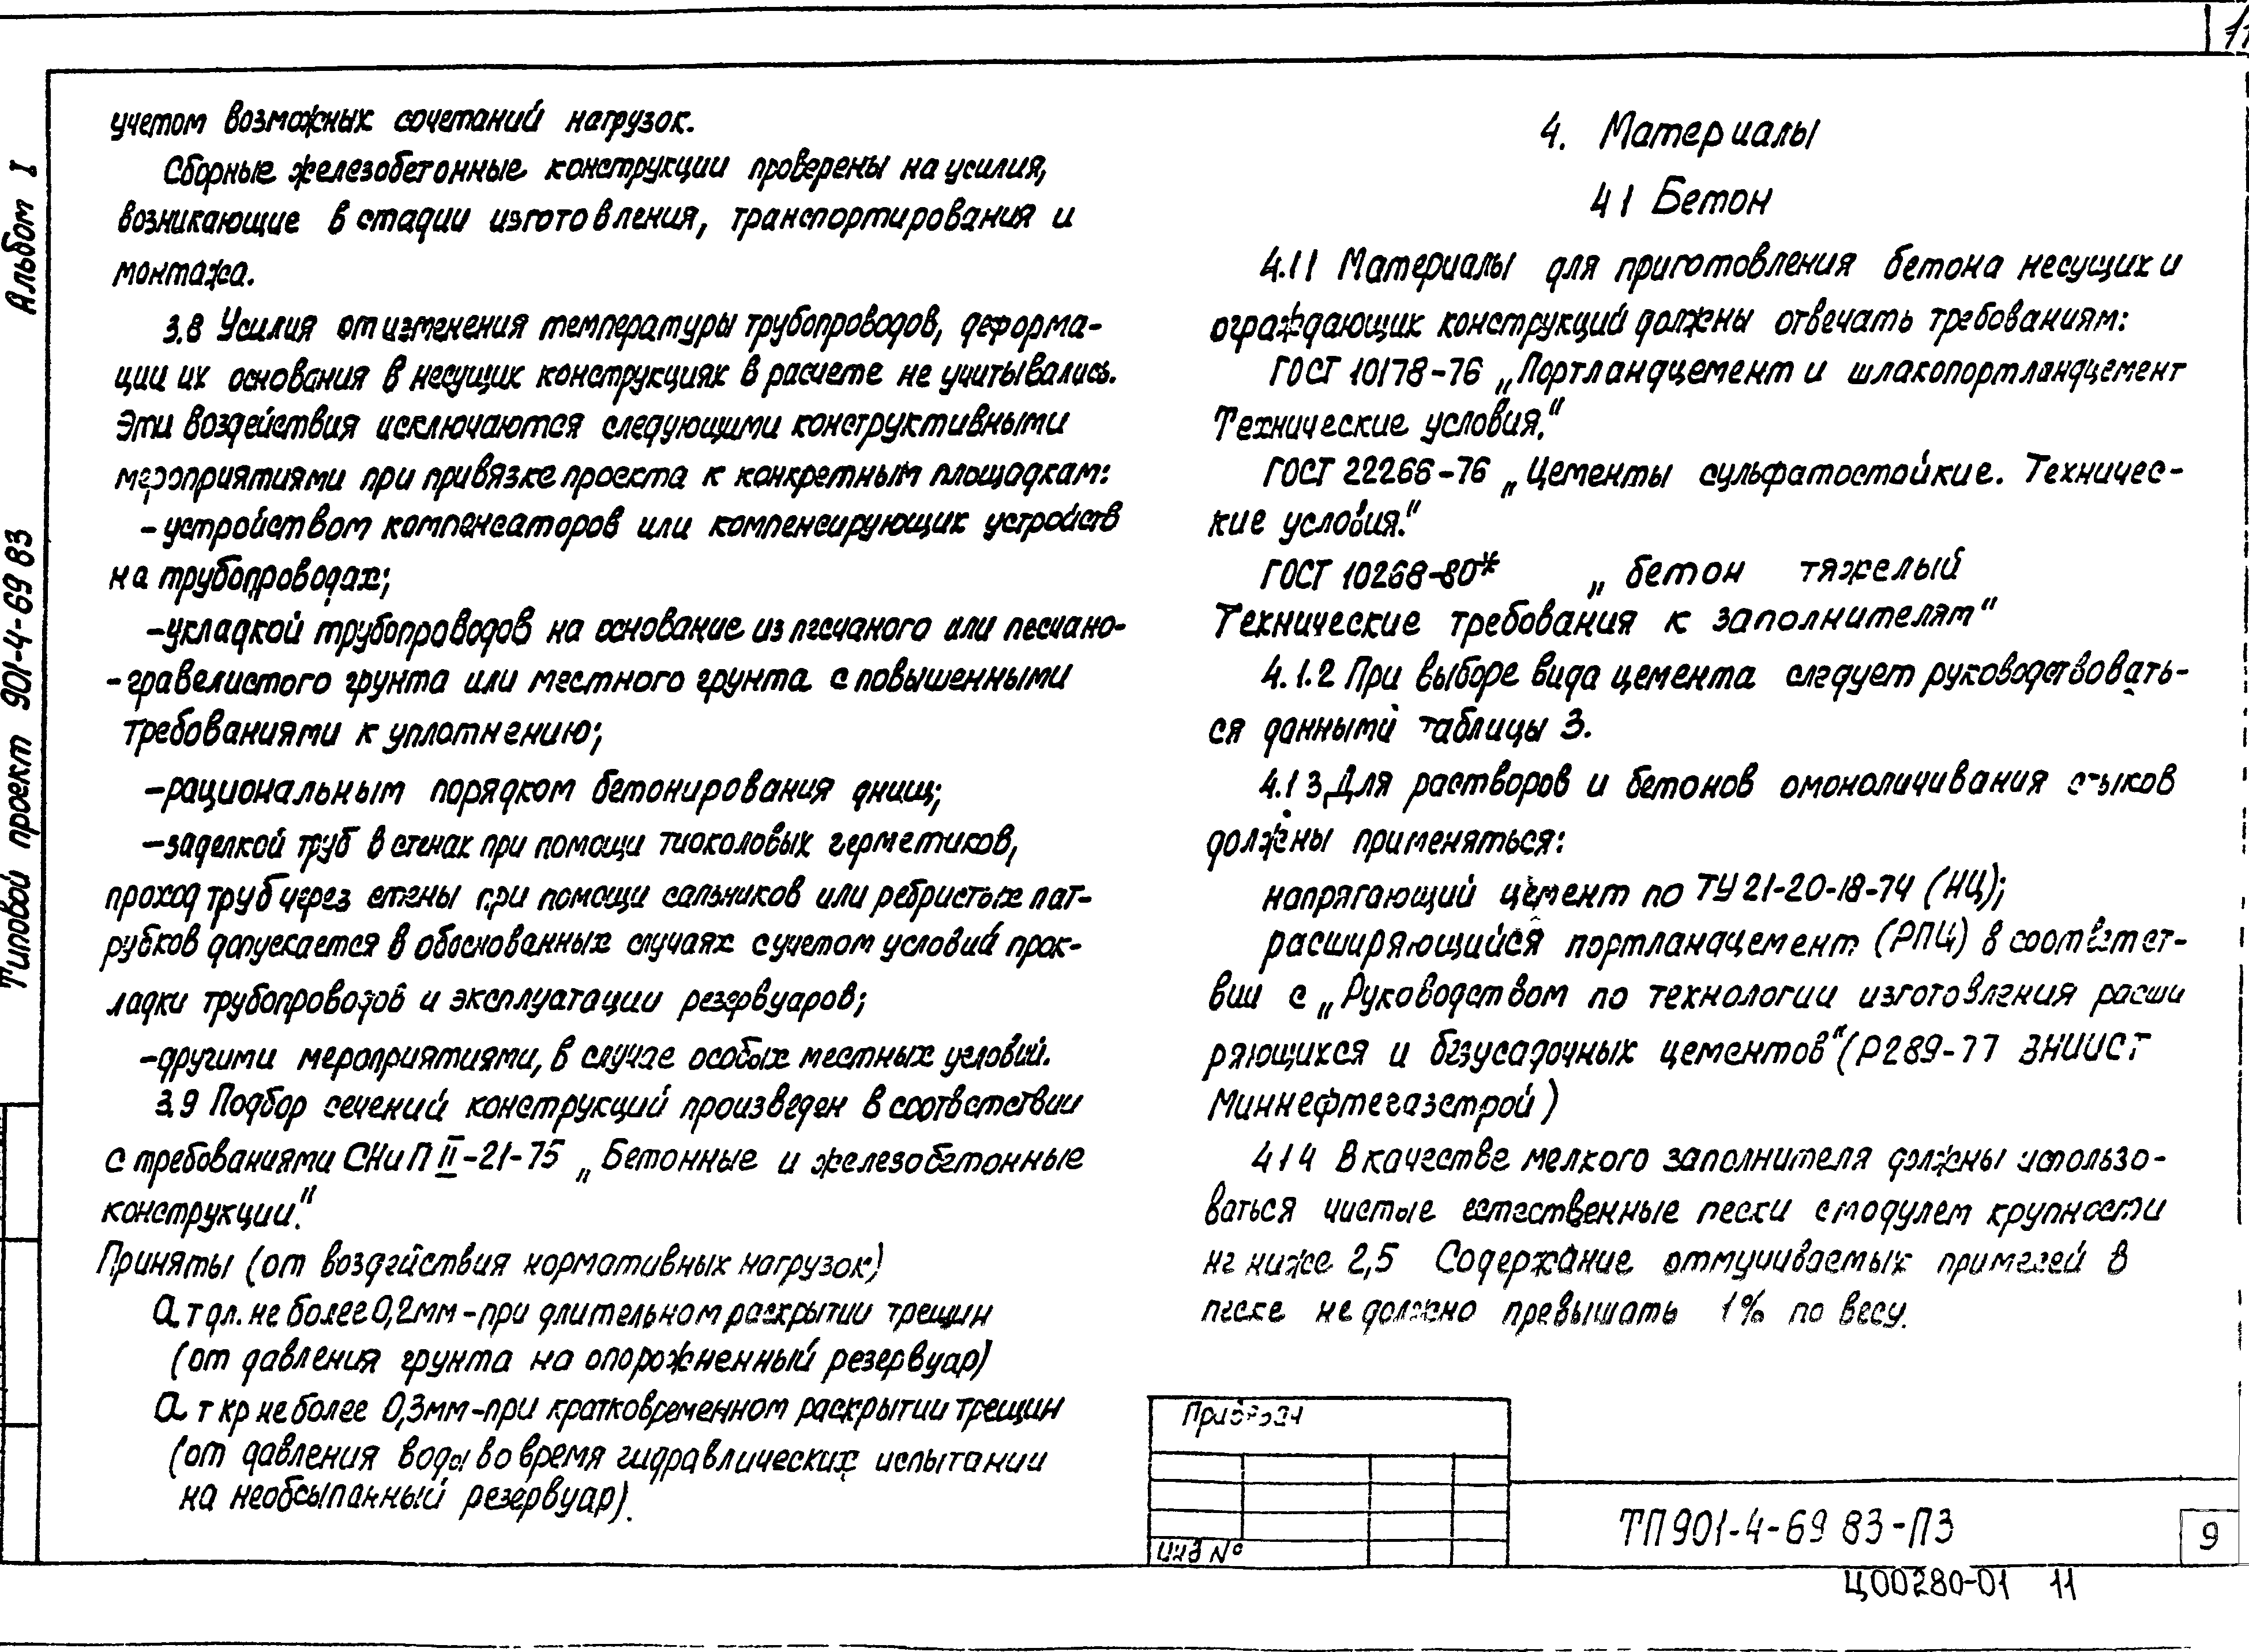 учетом возможных сочетаний нагрузок.
Сборные железобетонные конструкции проверены на усилия,
возникающие в стадии изготовления, транспортирования и
монтажа.
3.8 Усилия от изменения температуры трубопроводов, деформа-
ции их основания в несущих конструкциях в расчете не учитывались.
Эти воздействия исключаются следующими конструктивными
мероприятиями при привязке проекта к конкретным площадкам:
- устройством компенсаторов или компенсирующих устройств
на трубопроводах;
- укладкой трубопроводов на основание из песчаного или песчано-
- гравелистого грунта или местного грунта с повышенными
требованиями к уплотнению;
- рациональным порядком бетонирования днищ;
- заделкой труб в стенах при помощи тиоколовых герметиков,
проход труб через стены при помощи сальников или ребристых пат-
рубков допускается в обоснованных случаях с учетом условий прок-
ладки трубопроводов и эксплуатации резервуаров;
- другими мероприятиями, в случае особых местных условий.
3.9 Подбор сечений конструкций произведен в соответствии
с требованиями СНиП II-21-75 „Бетонные и железобетонные
конструкции."
Приняты (от воздействия нормативных нагрузок)
а т дл. не более 0,2мм - при длительном раскрытии трещин
(от давления грунта на опорожненный резервуар)
а т кр не более 0,3мм - при кратковременном раскрытии трещин
(от давления воды во время гидравлических испытании
на необсыпанный резервуар).
4. Материалы
4 1 Бетон
4.1 1 Материалы для приготовления бетона несущих и
ограждающих конструкций должны отвечать требованиям:
ГОСТ 10178-76 „Портландцемент и шлакопортландцемент
Технические условия."
ГОСТ 22266-76 „Цементы сульфатостойкие. Техничес-
кие условия."
ГОСТ 10268-80* „бетон тяжелый
Технические требования к заполнителям"
4.1.2 При выборе вида цемента следует руководствовать-
ся данными таблицы 3.
4.1 3 Для растворов и бетонов омоноличивания стыков
должны применяться:
напрягающий цемент по ТУ 21-20-18-74 (НЦ);
расширяющийся портландцемент (РПЦ) в соответст-
вии с „Руководством по технологии изготовления расши
ряющихся и безусадочных цементов" (Р289-77 ВНИИСТ
Миннефтегазстрой)
4 1 4 В качестве мелкого заполнителя должны использо-
ваться чистые естественные пески с модулем крупности
не ниже 2,5 Содержание отмучиваемых примесей в
песке не должно превышать 1% по весу.
Альбом I
Типовой проект 901-4-69 83
Привязан
Инв №
ТП 901-4-69 83-ПЗ
9
Ц00280-01 11